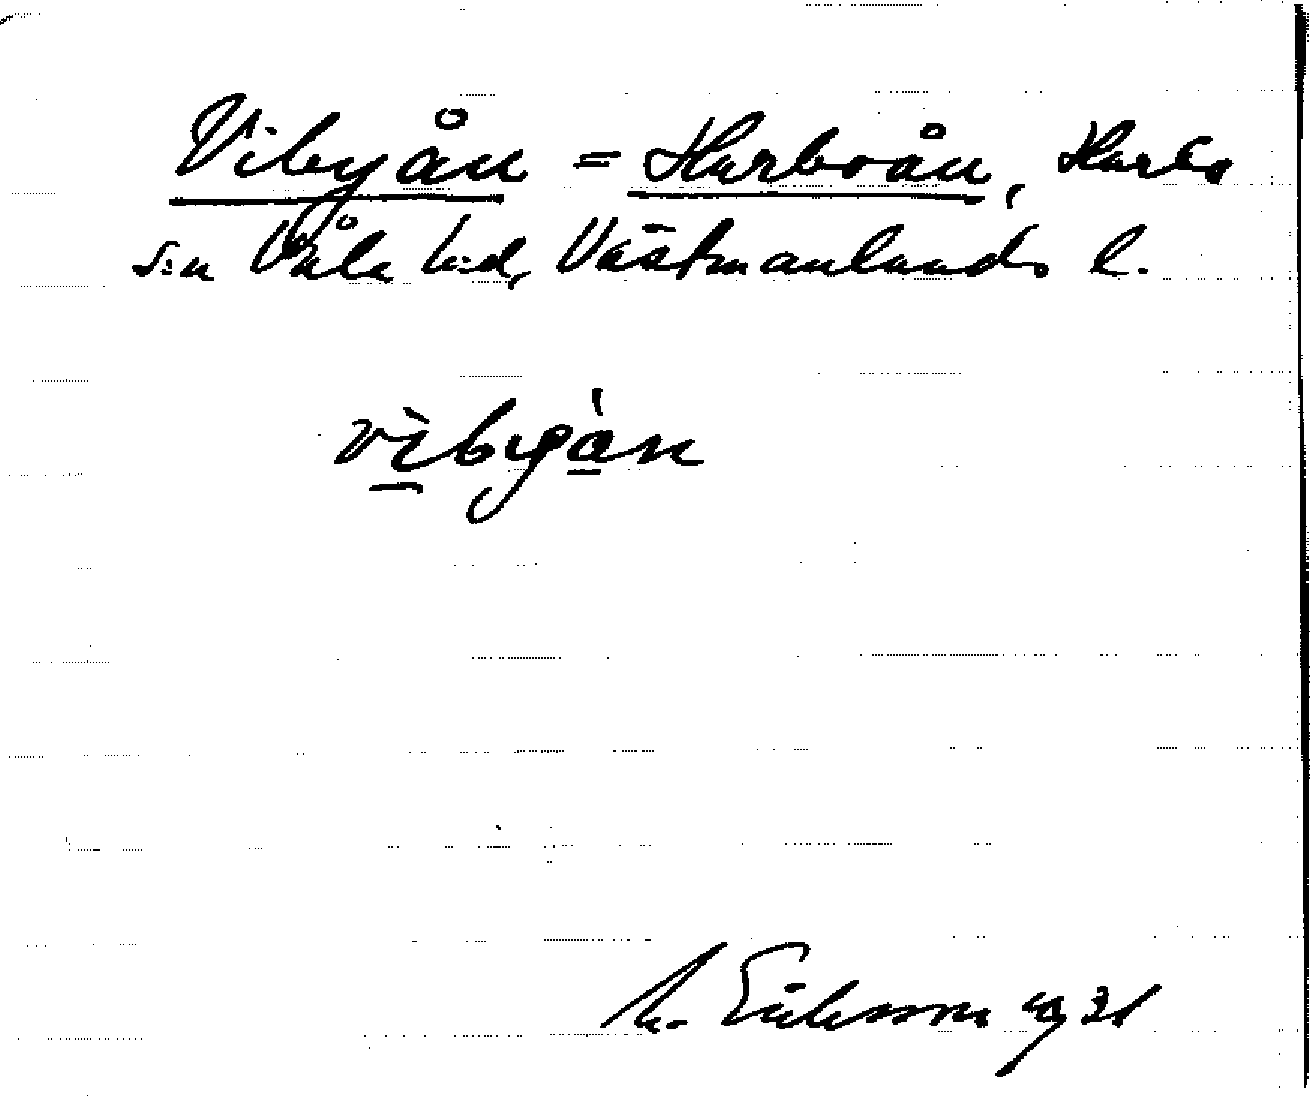 Vibyån = Harboån, Harbo
s:n Våla h:d, Västmanlands l.
vìbyån
M. Eriksson 1931